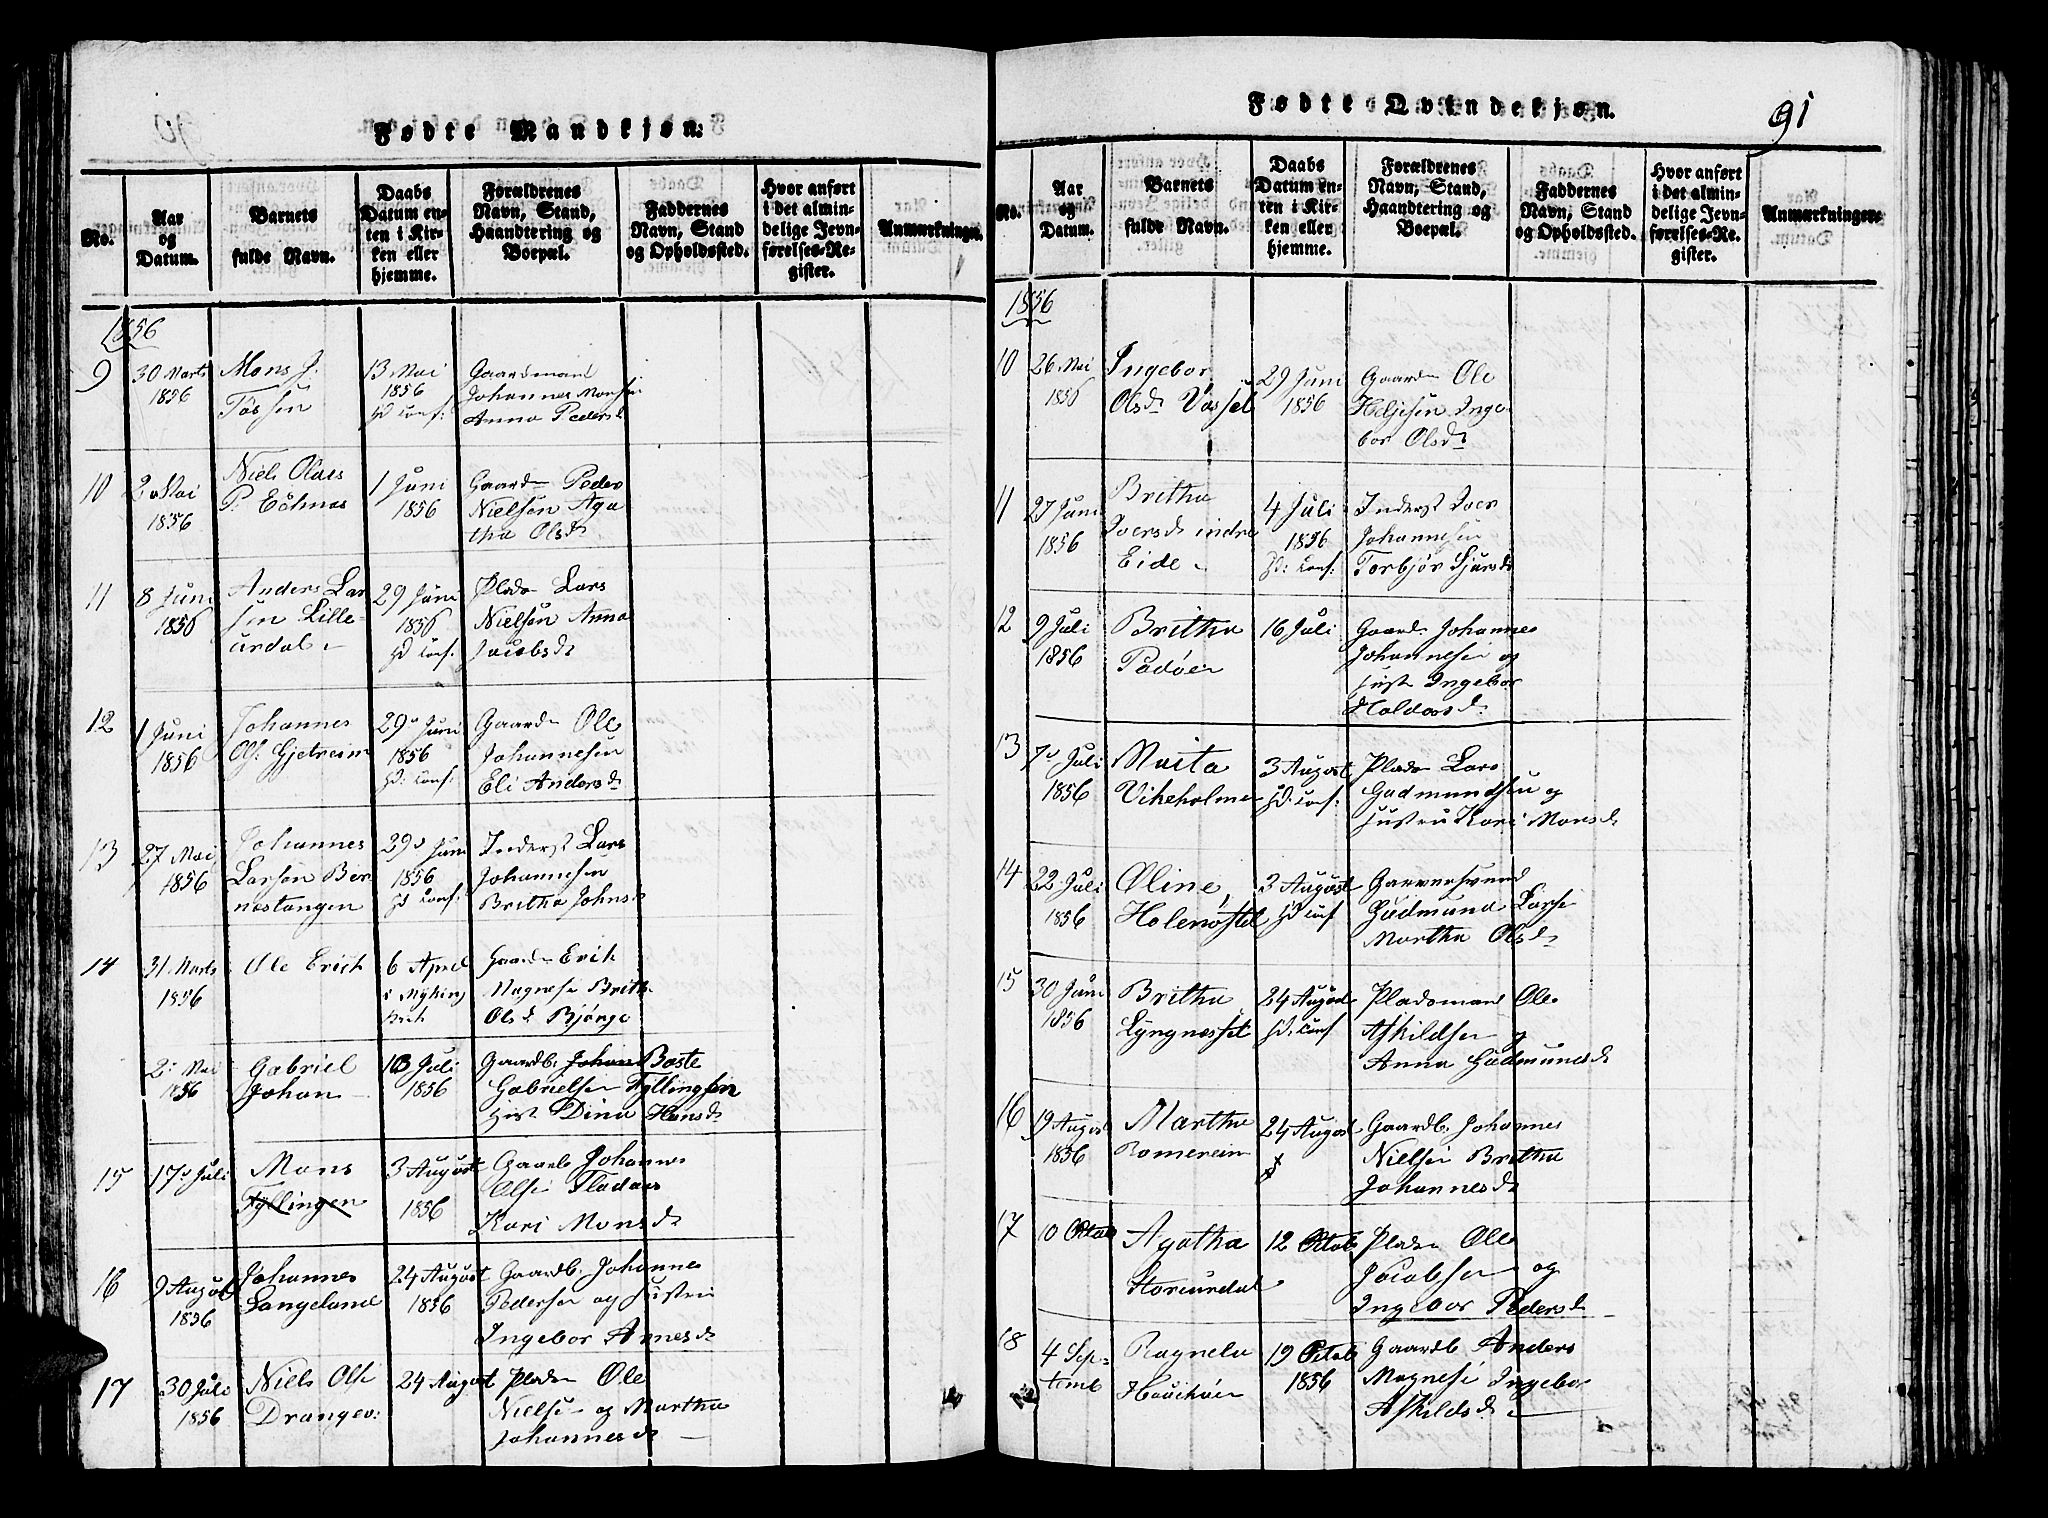 Fødte Mandkjøn:
No.
Aar og Datum.
Barnets fulde Navn.
Daabs Datum enten i Kirken eller hjemme.
Forældrenes Navn, Stand, Haandtering og Boepæl.
Faddernes Navn, Stand og Opholdssted.
Hvor anført i det almindelige Jevnførelses-Register.
Anmærkninger.
1856
9
30 Marts
1856
Mons J.
Tössen
13 Mai
1856
Gaardmand
Johannes Monsen
Anna Pedersd
10
2 Mai
1856
Niels Olaes
P.
1 Juni
1856
Gaardm Peder
Nielsen Aga
tha Olsd
11
8 Juni
1856
Anders Lar
sen Lille
urdal
29 Juni
1856
Hd Conf:
Pladsm Lars
Nielsen Anna
Jacobsd
12
1 Juni
1856
Johannes
Ols. Gjetreim
29 Juni
1856
Hd: Conf:
Gaardm Ole
Johannesen
Eli Andersd
13
27 Mai
1856
Johannes
Larsen Ber
nestangen
29 Juni
1856
Hd Conf:
Inderst Lars
Johannesen
Britha Johnsd
14
31 Marts
1856
Ole Erich
6 April
i Myking
Gaardm Erik
Magnese Brith
Olsd Bjørge
2 Mai
1856
Gabriel
Johan
10 Juli
1856
Gaardb. Johan Baste
Gabrielsen Fyllingsen
Dina Hansd
15
17 Juli
Mons
Fyllingen
3 August
1856
Gaardb Johannes
Olsen Fladaas
Kari Monsd
16
9 August
1856
Johannes
Langeland
24 August
1856
Gaardb. Johannes
Pedersen og Hustru
Ingebor Annesd
17
30 Juli
1856
Niels Olse
Drangev:
24 August
Pladsm Ole
Nielsen og Martha
Johannesd
Fødte Qvindekjøn.
91
No.
Aar og Datum.
Barnets fulde Navn.
Daabs Datum enten i Kirken eller hjemme.
Forældrenes Navn, Stand, Haandtering og Boepæl.
Faddernes Navn, Stand og Opholdssted.
Hvor anført i det almindelige Jevnførelses-Register.
Anmærkninger.
1856
10
26 Mai
1856
Ingebor
Olsd Vassel
29 Juni
1856
Gaardm Ole
Heljesen Inge
bor Olsd
11
27 Juni
1856
Britha
Iversd indre
Eide
4 Juli
1856
Hd: Conf:
Inderst Iver
Johannesen
Torbjør Sjursd
12
9 Juli
1856
Britha
Padøen
16 Juli
Gaardm Johannes
Johannesen og
Hust Ingebor
Haldorsd
13
7 Juli
1856
Marta
Vikeholmen
3 August
Hd: Conf:
Pladsm Lars
Gudmundsen og
Hustru Kari Monsd
14
22 Juli
1856
Oline
Holenøstet
3 August
Hd Conf
Garversvend
Gudmund Larse
Martha Olsd
15
30 Juni
1856
Britha
Lyngnesset
24 August
Hd. Conf
Pladsmand Ole
Askildsen og
Anna Gudmundsd
16
19 August
1856
Martha
Romereim
24 August
Gaardb. Johannes
Nielsen Britha
Johannesd
17
10 Octob
Agatha
Storeurdal
12 Octob
Pladsm Ole
Jacobsen og
Ingebor Pedersd
18
4 Sep-
temb
Ragnela
Haukøen
19 Octob
1856
Gaardb Anders
Magnese Ingebor
Askildsd